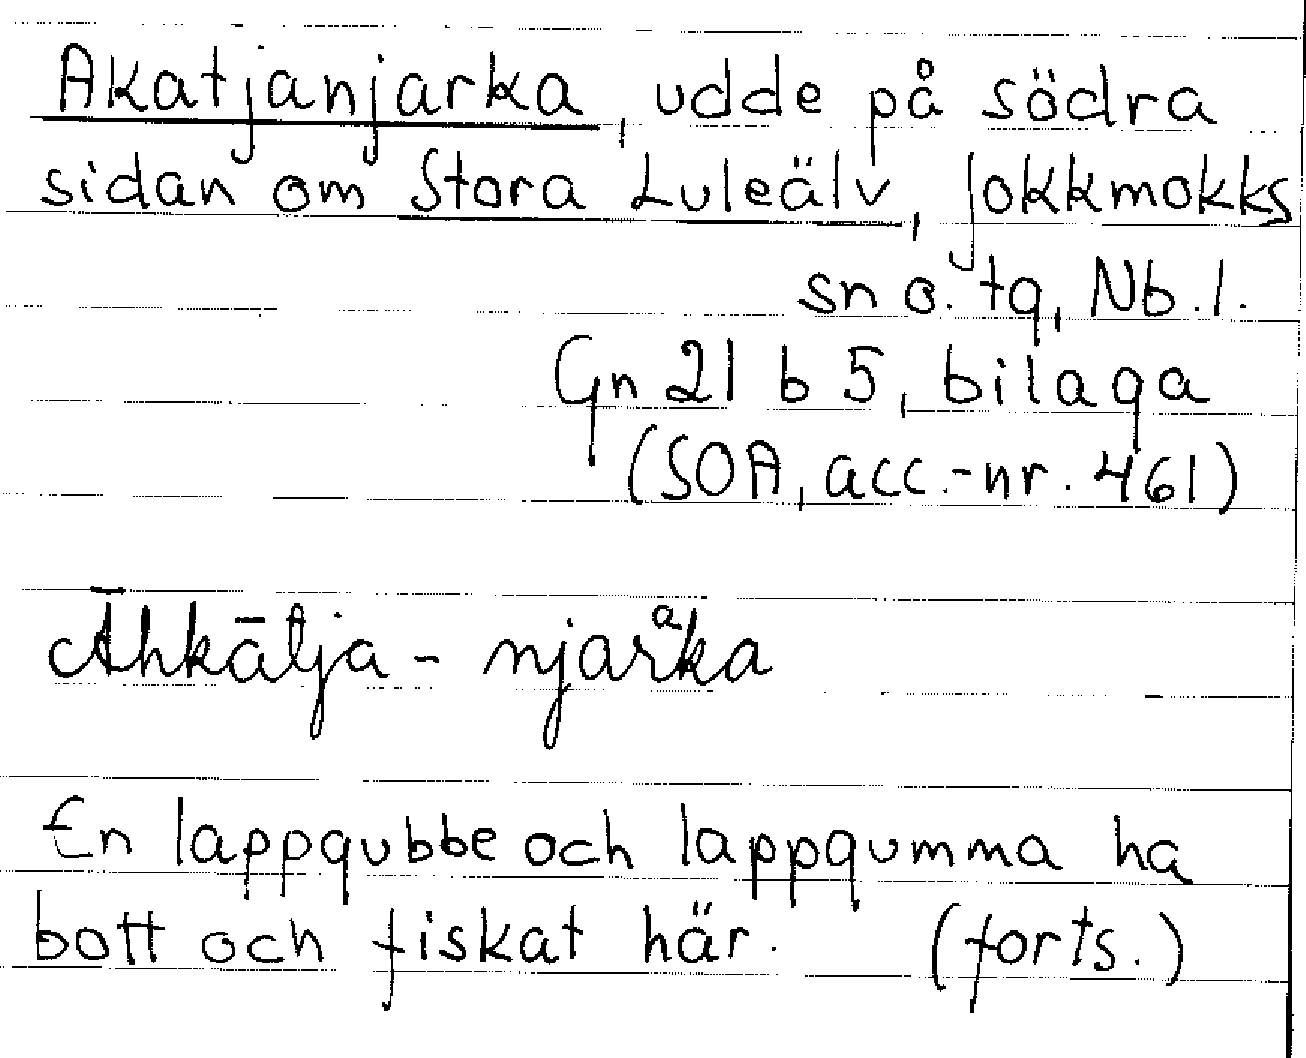 Akatjanjarka, udde på södra
sidan om Stora Luleälv, Jokkmokks
sn o. tg, Nb. l.
Gn 21 b 5, bilaga
(SOA, acc.-nr. 461)
Āhkātja - njarᵃ̊ka
En lappgubbe och lappgumma ha
bott och fiskat här. (forts.)